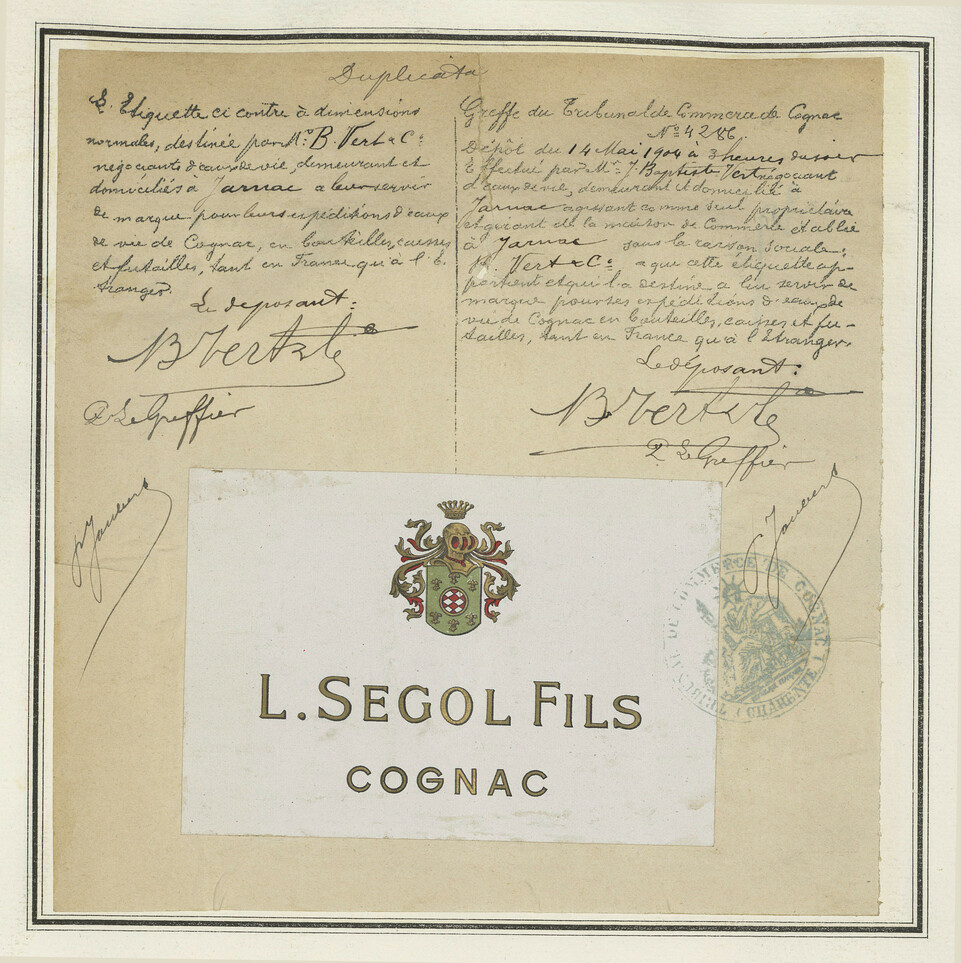 Duplicata
L'Etiquette ci contre à dimensions
normales, destinée par Mrs B. Vert & Co
négociants d'eaux de vie, demeurant et
domiciliés à Jarnac a leur servir
de marque pour leurs expéditions d'eaux
de vie de Cognac, en bouteilles, caisses
et futailles, tant en France qu'à l'E-
tranger.
Le déposant:
B Vert & Co
P. Le Greffier
Joubert
Greffe du Tribunal de Commerce de Cognac
No 4286.
Dépôt du 14 Mai 1904 à 3 heures du soir
Effectué par Mr J. Baptiste Vert négociant
d'eaux de vie, demeurant et domicilié à
Jarnac agissant comme seul propriétaire
et gérant de la maison de Commerce établie
à Jarnac sous la raison sociale:
B. Vert & Co a que cette étiquette ap-
partient et qu'il a destiné a lui servir de
marque pour ses expéditions d'eaux de
vie de Cognac en bouteilles, caisses et fu-
tailles, tant en France qu'à l'Etranger.
Le déposant:
B Vert & Co
P. Le Greffier
Joubert
L. SEGOL FILS
COGNAC
TRIBUNAL DE COMMERCE DE COGNAC (CHARENTE)